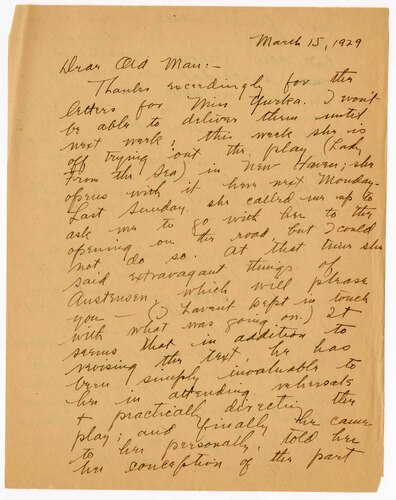 March 15, 1929
Dear Old Man:-
Thanks exceedingly for the
letters for Miss Yurka. I won't
be able to deliver them until
next week; this week she is
off trying out the play (Lady
From the Sea) in New Haven; she
opens with it here next Monday.
Last Sunday she called me up to
ask me to go with her to the
opening on the road but I could
not do so. At that time she
said extravagant things of
Austensen, which will please
you — (I haven't kept in touch
with what was going on.) It
seems that in addition to
revising the text, he has
been simply invaluable to
her in attending rehersals
+ practically directin the
play; and finally he came
to her personally, told her
her conception of the part